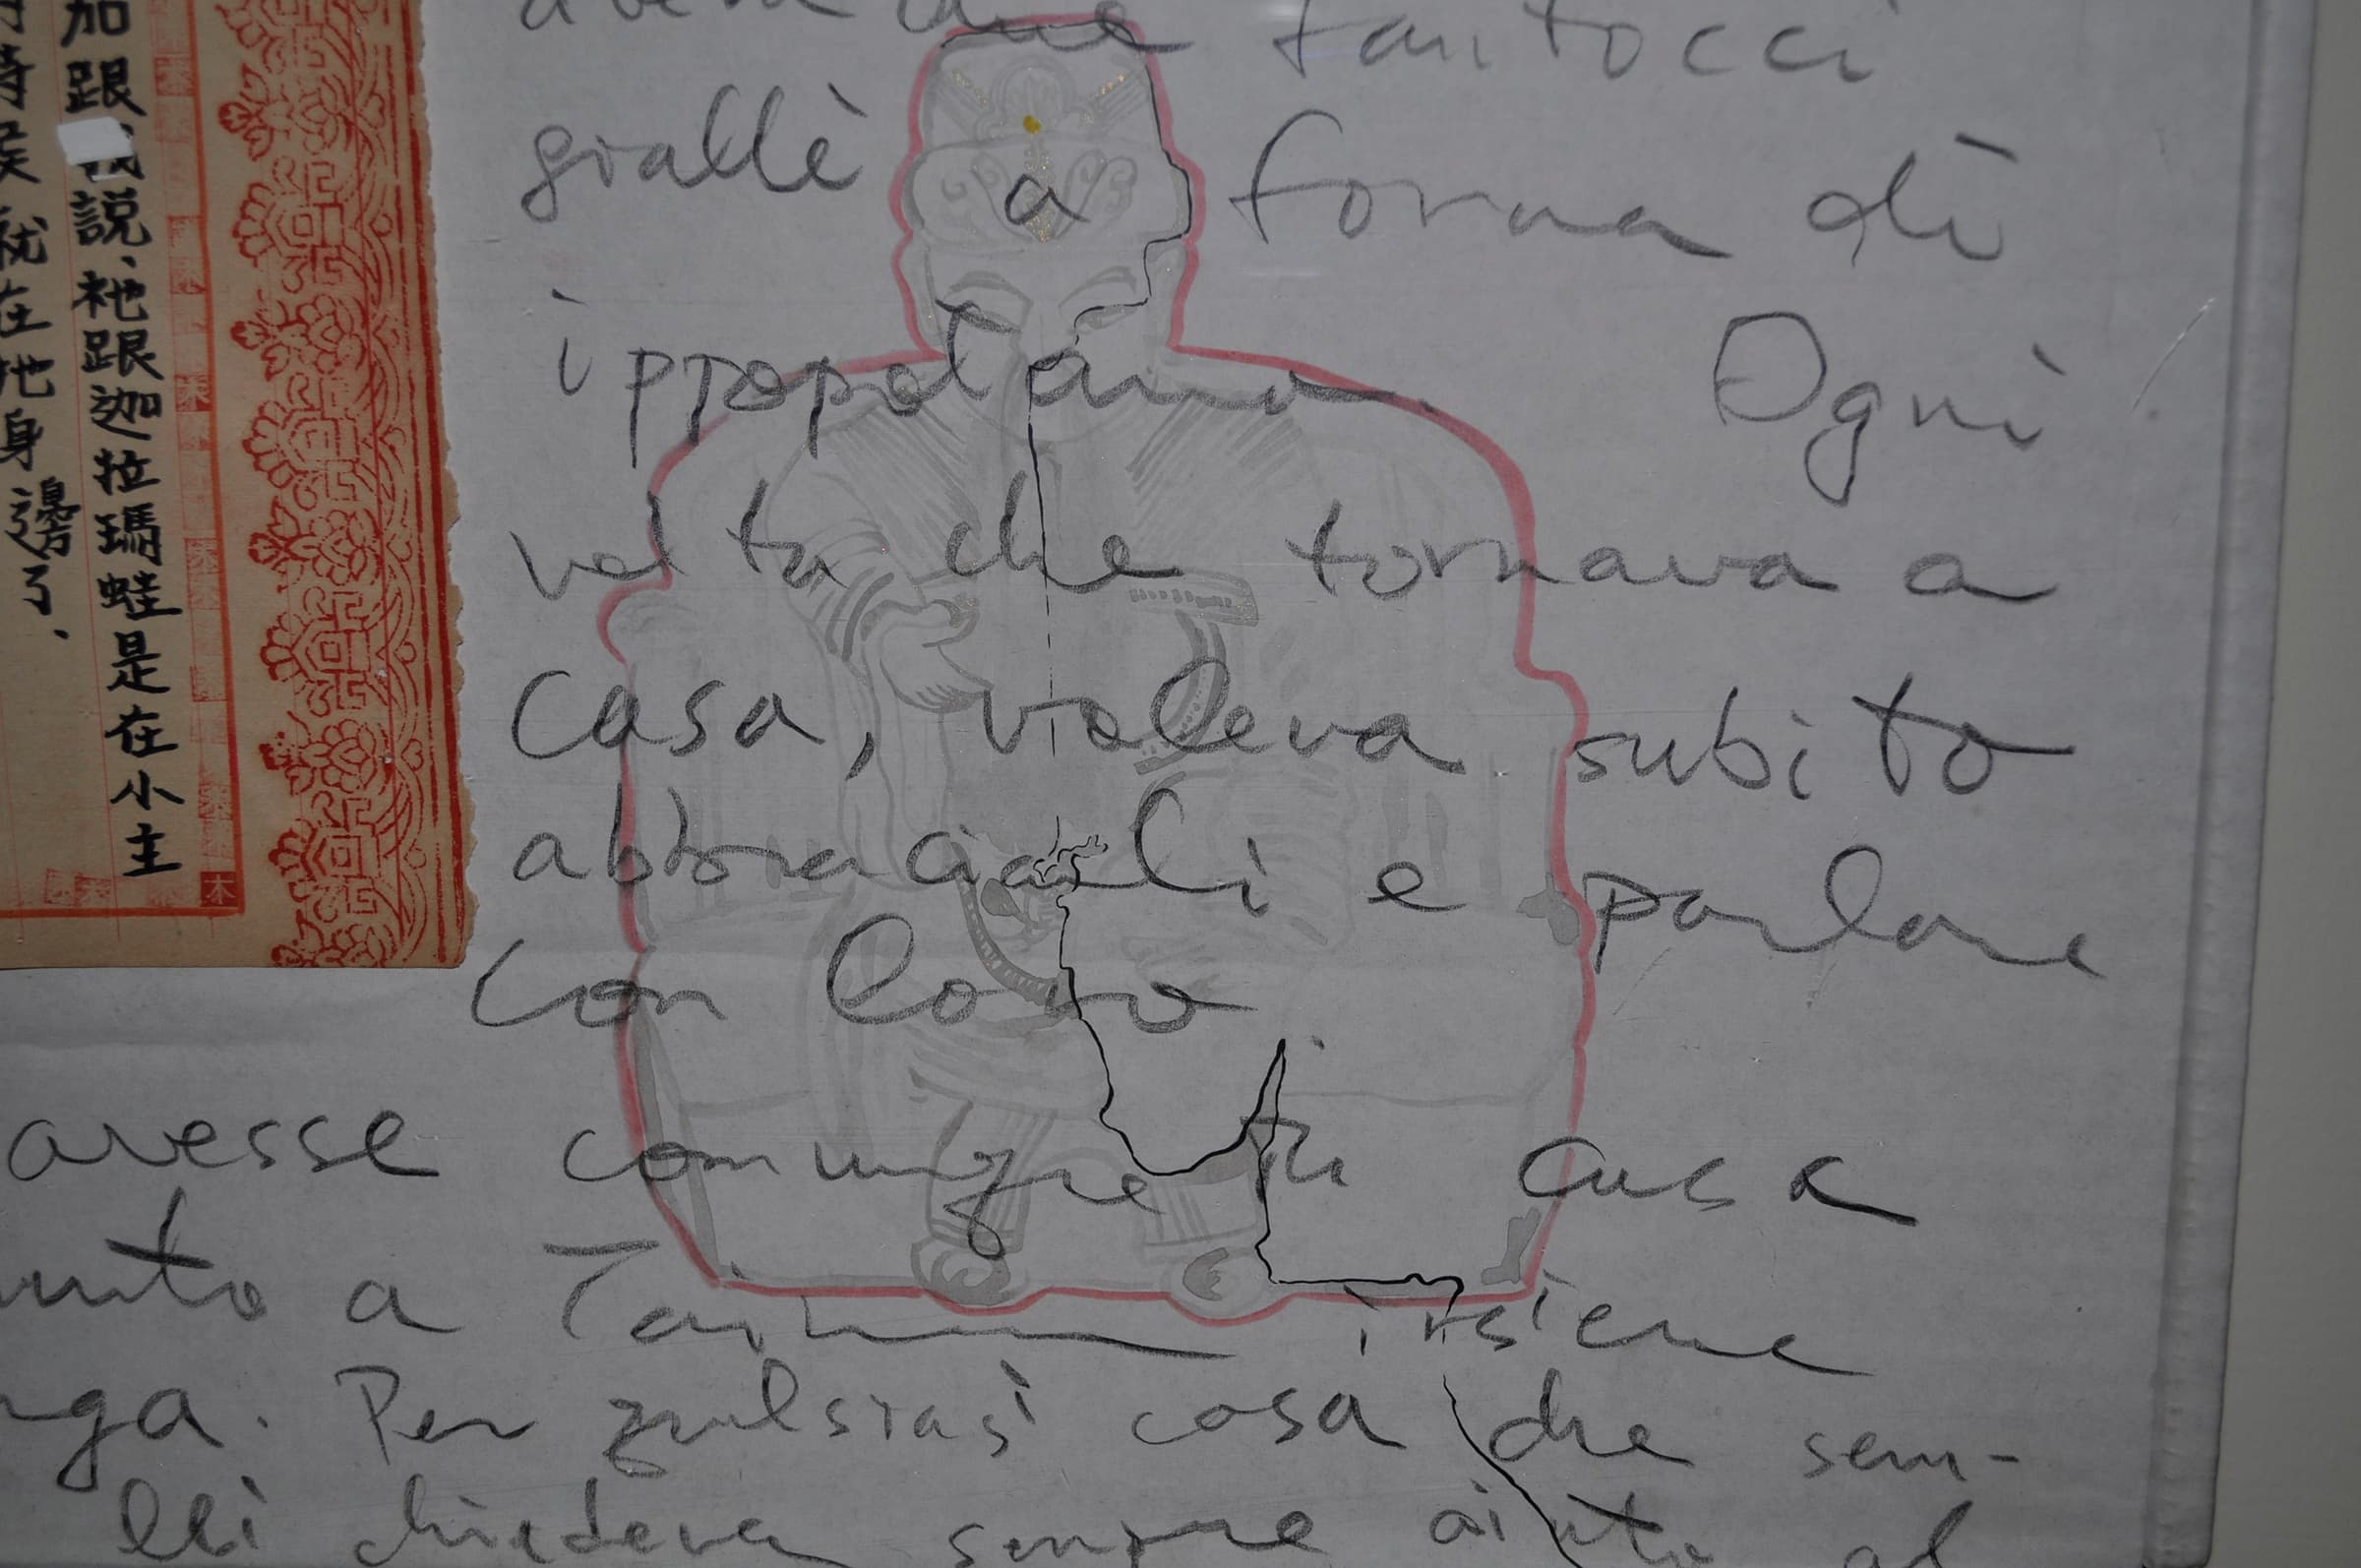 加跟我說、祂跟迦拉瑪蛙是在小主
候就在身邊了、
due fantocci
gialli a forma di
ippopotamo. Ogni
volta che tornava a
casa, voleva subito
abbraciarli e parlare
con loro.
avesse comunque casa
a insieme
Per qualsiasi cosa che sem-
chiedeva sempre aiuto al